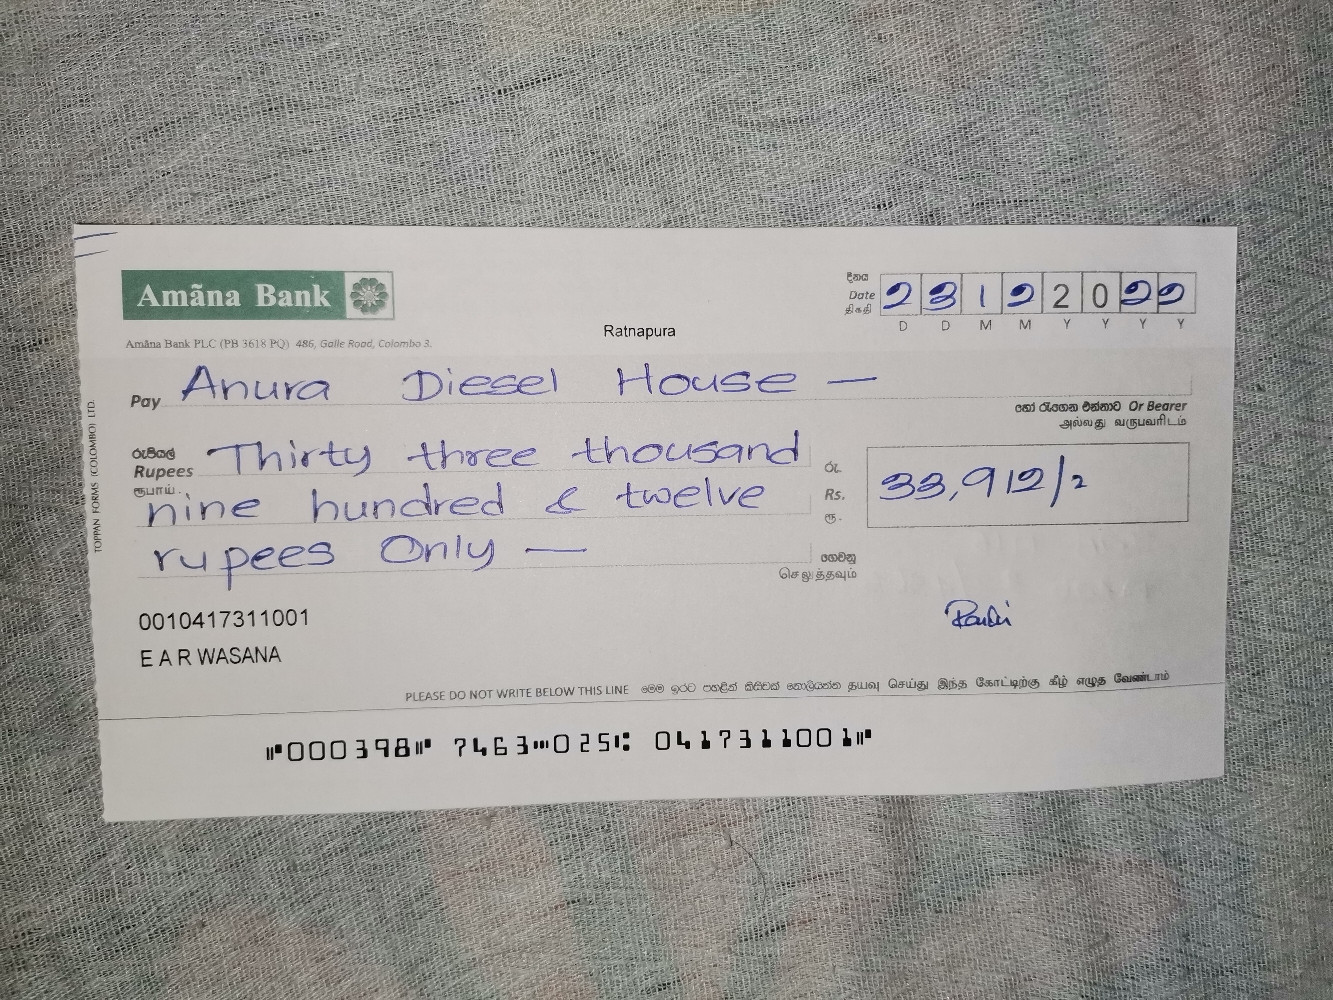 Amãna Bank
Amãna Bank PLC (PB 3618 PQ) 486, Galle Road, Colombo 3.
Ratnapura
දිනය
Date 2 3 1 2 2 0 2 2
திகதி
D D M M Y Y Y Y
Pay Anura Diesel House —
හෝ රැගෙන එන්නාට Or Bearer
அல்லது வருபவரிடம்
රුපියල්
Rupees Thirty three thousand
ரூபாய்
nine hundred & twelve
rupees Only —
රු.
Rs. 33,912/2
ரூ.
ගෙවනු
செலுத்தவும்
0010417311001
E A R WASANA
PLEASE DO NOT WRITE BELOW THIS LINE මෙම ඉරට පහළින් කිසිවක් නොලියන්න தயவு செய்து இந்த கோட்டிற்கு கீழ் எழுத வேண்டாம்
⑈000398⑈ 7463⑉025⑆ 0417311001⑈
TOPPAN FORMS (COLOMBO) LTD.